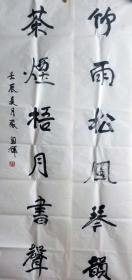 竹雨松風琴韻
茶煙梧月書聲
壬辰夏月